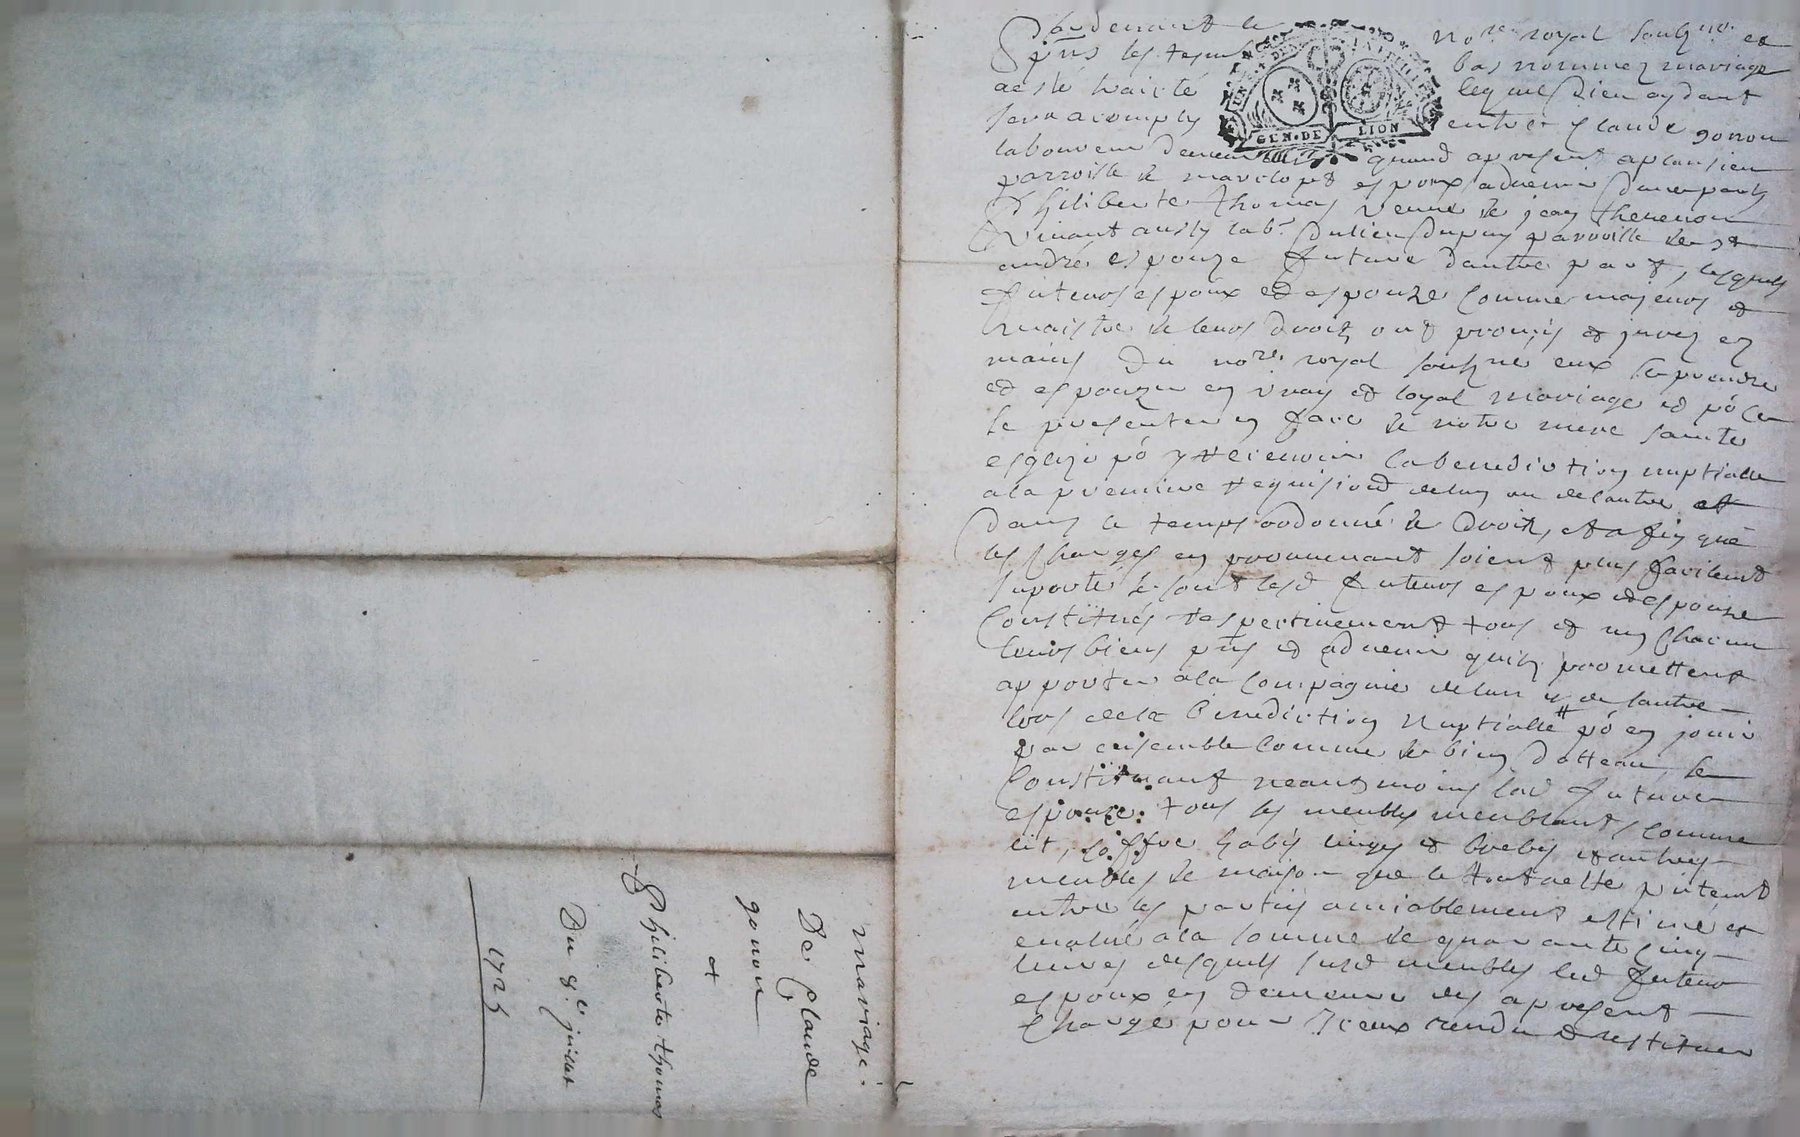 mariage
De Claude
gonon
et
Philiberte thomas
Du 8e juillet
1725
Pardevant le no.re royal soubz.né et
pnts les tesm bas nommez mariage
a esté traicté lequel Dieu aydant
sera accomply entre Claude gonon
laboureur demeurant quand apresent aplansieu
parroisse de marclopt espoux advenir d'une part
Philiberte thomas veuve de jean thevenon
vivant aussy lab.r du lieu Dupuy parroisse de st
andré espouze future dautre part, lesquels
futeurs espoux et espouze comme majeurs et
maistre de leurs droitz ont promis et jurez ez
mains du no.re royal soubz.né eux se prendre
et espouzer en vray et loyal mariage et po.r ce
se presenter en face de notre mere sainte
esglize po.r y recevoir la benediction nuptialle
a la premiere requisiond de lun ou de lautre et
dans le temps ordonné de droit, et afin que
les charges en provenant soient plus facilemt
suporté se sont lesd futeurs espoux et espouze
Constitués respectivement tous et un chacun
leurs biens pnts et advenir quilz promettent
apporter a la compagnie de lun et de lautre
lors de la benediction Nuptialle po.r en jouir
par ensemble comme de bien dotteau, se
Constituant neantmoins lad future
espouze tous les meubles meublants comme
lit, coffre habis linges et brebis et autres
meubles de maison que le tout a esté pntemt
entre les parties amiablement estimé et
evalué a la somme de quarante cinq
livres desquels susd meubles led futeur
espoux en demeure des apresent
Chargé pour Iceux rendre et restituer
GEN. DE LION